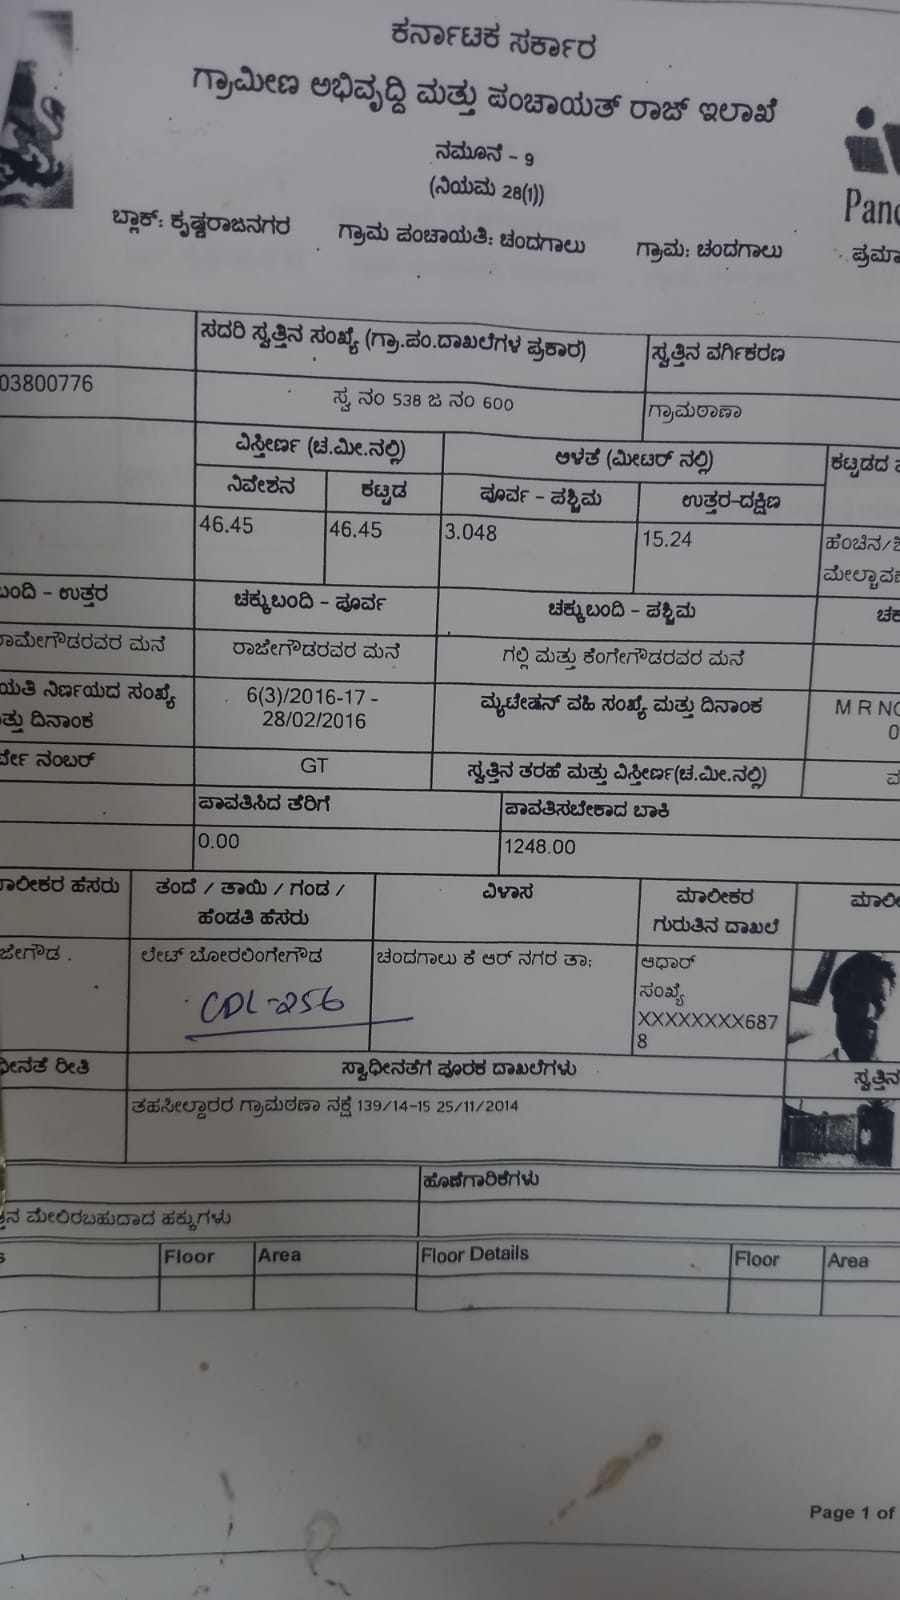 ಕರ್ನಾಟಕ ಸರ್ಕಾರ
ಗ್ರಾಮೀಣ ಅಭಿವೃದ್ದಿ ಮತ್ತು ಪಂಚಾಯತ್ ರಾಜ್ ಇಲಾಖೆ
ನಮೂನೆ - 9
(ನಿಯಮ 28(1))
Panc
ಬ್ಲಾಕ್: ಕೃಷ್ಣರಾಜನಗರ ಗ್ರಾಮ ಪಂಚಾಯತಿ: ಚಂದಗಾಲು ಗ್ರಾಮ: ಚಂದಗಾಲು ಪ್ರಮಾ
ಸದರಿ ಸ್ವತ್ತಿನ ಸಂಖ್ಯೆ (ಗ್ರಾ.ಪಂ.ದಾಖಲೆಗಳ ಪ್ರಕಾರ) ಸ್ವತ್ತಿನ ವರ್ಗೀಕರಣ
03800776 ಸ್ವ ನಂ 538 ಜ ನಂ 600 ಗ್ರಾಮಠಾಣಾ
ವಿಸ್ತೀರ್ಣ (ಚ.ಮೀ.ನಲ್ಲಿ) ಅಳತೆ (ಮೀಟರ್ ನಲ್ಲಿ) ಕಟ್ಟಡದ
ನಿವೇಶನ ಕಟ್ಟಡ ಪೂರ್ವ - ಪಶ್ಚಿಮ ಉತ್ತರ-ದಕ್ಷಿಣ
46.45 46.45 3.048 15.24 ಹೆಂಚಿನ/
ಮೇಲ್ಚಾವ
ಬಂದಿ - ಉತ್ತರ ಚಕ್ಕುಬಂದಿ - ಪೂರ್ವ ಚಕ್ಕುಬಂದಿ - ಪಶ್ಚಿಮ ಚಕ
ರಾಮೇಗೌಡರವರ ಮನೆ ರಾಜೇಗೌಡರವರ ಮನೆ ಗಲ್ಲಿ ಮತ್ತು ಕೆಂಗೇಗೌಡರವರ ಮನೆ
ಯತಿ ನಿರ್ಣಯದ ಸಂಖ್ಯೆ 6(3)/2016-17 - ಮ್ಯುಟೇಶನ್ ವಹಿ ಸಂಖ್ಯೆ ಮತ್ತು ದಿನಾಂಕ M R NO
ತ್ತು ದಿನಾಂಕ 28/02/2016 0
ರ್ವೇ ನಂಬರ್ GT ಸ್ವತ್ತಿನ ತರಹೆ ಮತ್ತು ವಿಸ್ತೀರ್ಣ(ಚ.ಮೀ.ನಲ್ಲಿ)
ಪಾವತಿಸಿದ ತೆರಿಗೆ ಪಾವತಿಸಬೇಕಾದ ಬಾಕಿ
0.00 1248.00
ಾಲೀಕರ ಹೆಸರು ತಂದೆ / ತಾಯಿ / ಗಂಡ / ವಿಳಾಸ ಮಾಲೀಕರ ಮಾಲೀ
ಹೆಂಡತಿ ಹೆಸರು ಗುರುತಿನ ದಾಖಲೆ
ಜೇಗೌಡ . ಲೇಟ್ ಬೋರಲಿಂಗೇಗೌಡ ಚಂದಗಾಲು ಕೆ ಆರ್ ನಗರ ತಾ; ಆಧಾರ್
ಸಂಖ್ಯೆ
CDL-256 XXXXXXXX687
8
ಧೀನತೆ ರೀತಿ ಸ್ವಾಧೀನತೆಗೆ ಪೂರಕ ದಾಖಲೆಗಳು ಸ್ವತ್ತಿನ
ತಹಸೀಲ್ದಾರರ ಗ್ರಾಮಠಣಾ ನಕ್ಷೆ 139/14-15 25/11/2014
ಹೊಣೆಗಾರಿಕೆಗಳು
ತ್ತಿನ ಮೇಲಿರಬಹುದಾದ ಹಕ್ಕುಗಳು
s Floor Area Floor Details Floor Area
Page 1 of